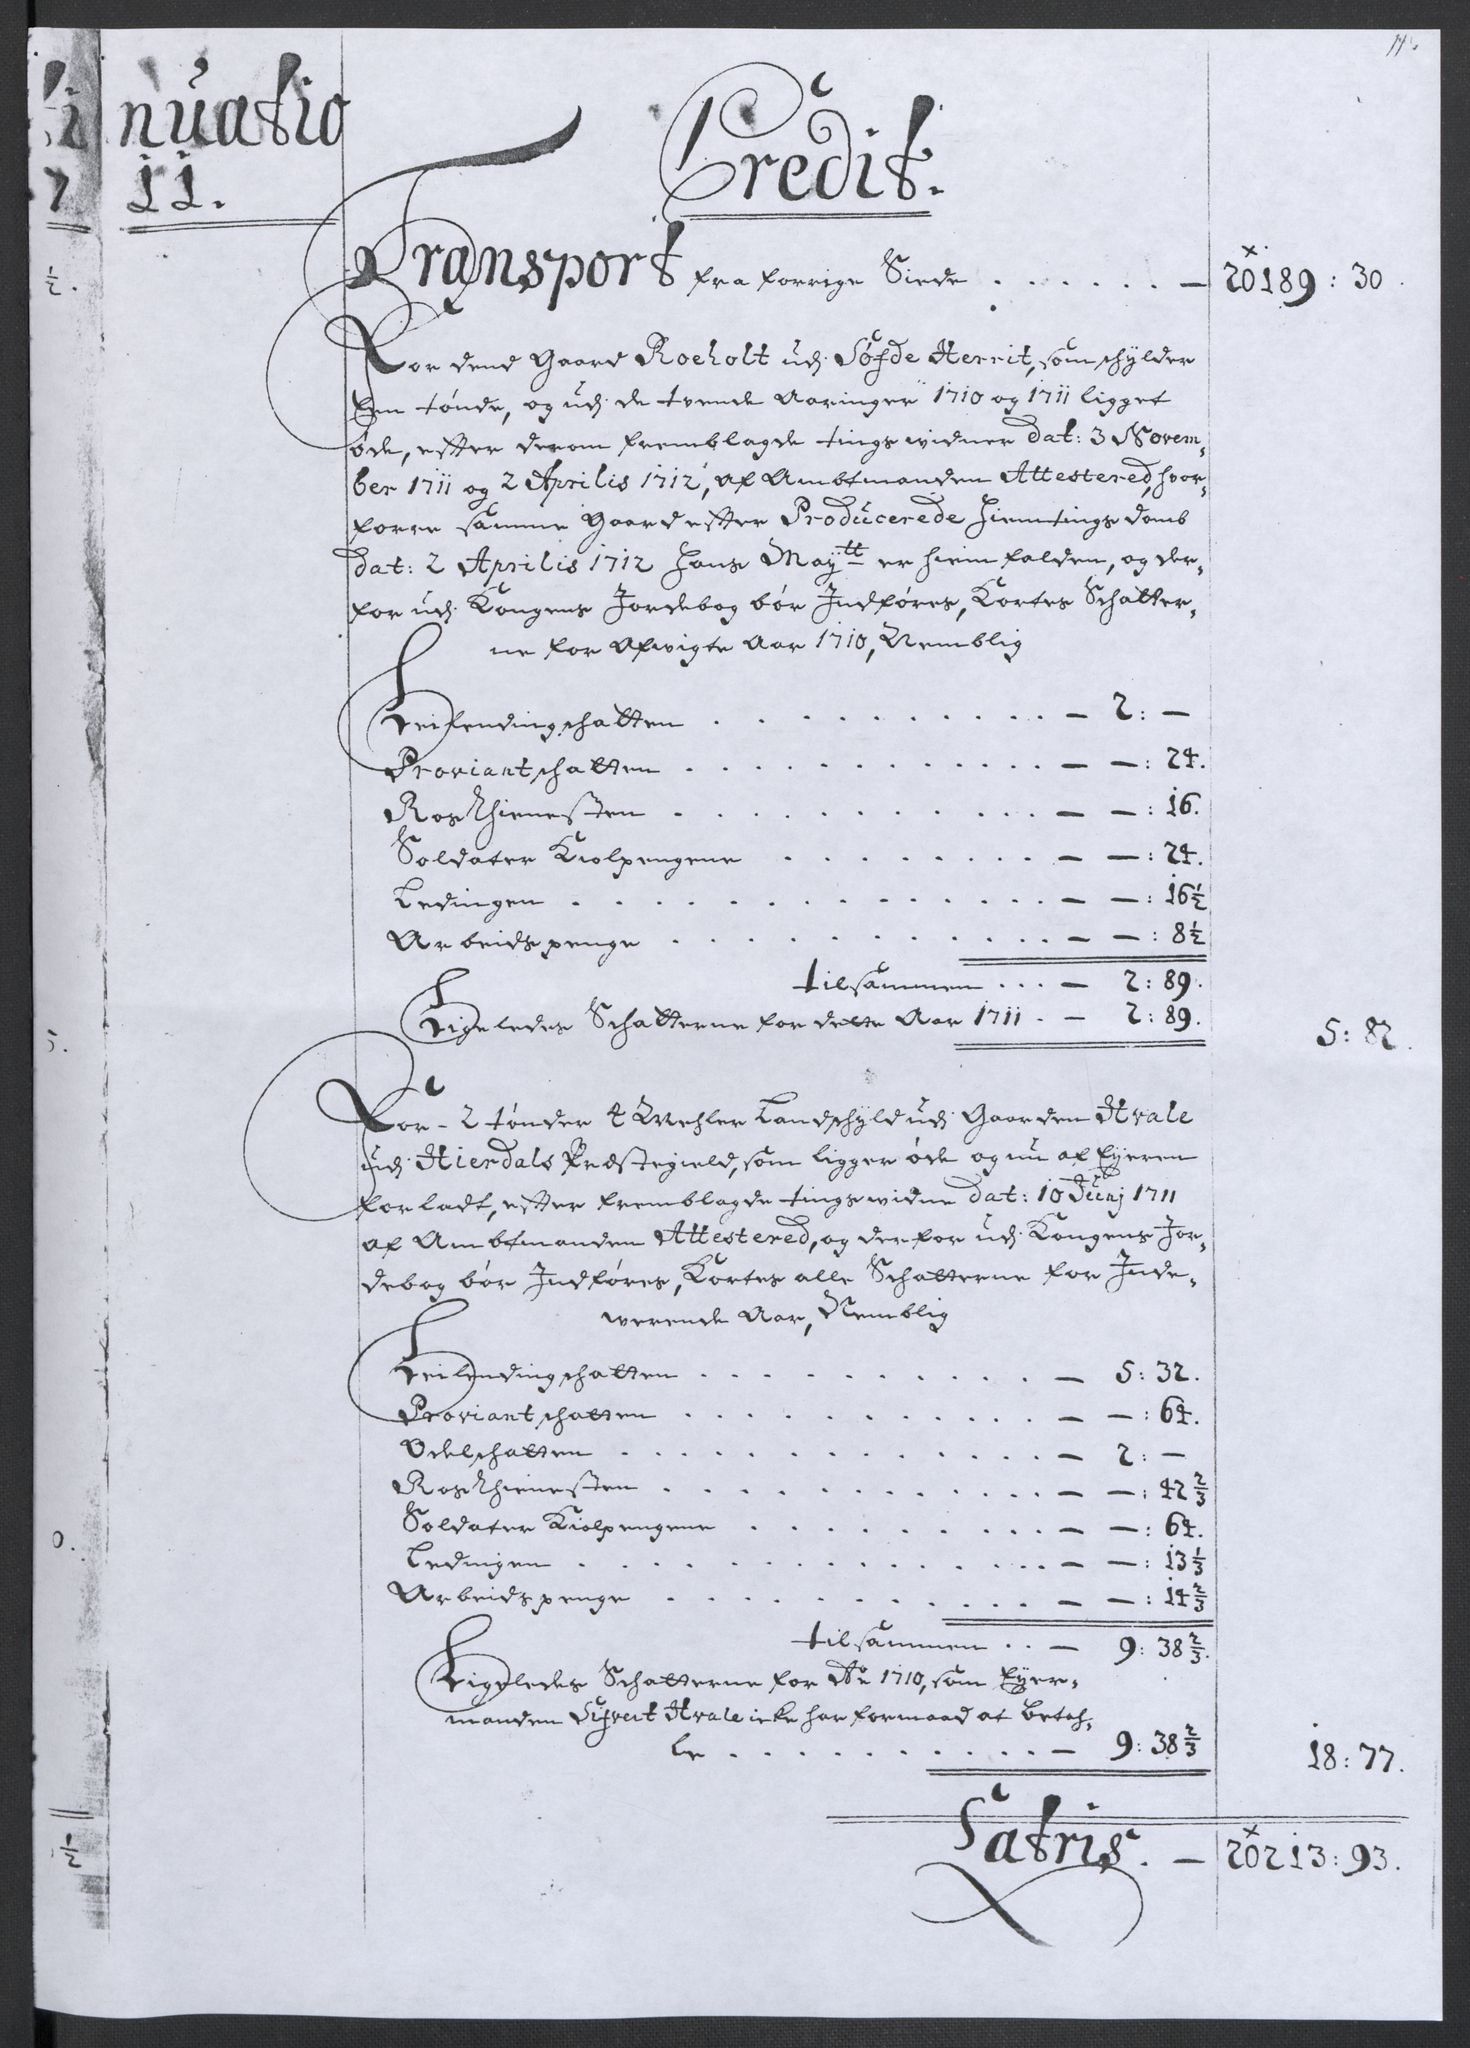 nuatio
11.
Credit.
Transport fra forrige Siede . . . . . . — 20189 : 30.
For dend Gaard Roeholt udj Søfde Herrit, som schylder
Een tønde, og udj de tvende Aaringer 1710 og 1711 ligget
øde, efter derom fremblagde tingswidner dat: 3 Novem-
ber 1711 og 2 Aprilis 1712, af Ambtmanden Attestered, hvor-
forre samme Gaard efter Producerede hiemtings domb
dat: 2 Aprilis 1712 Hans Maytt er hiemfalden, og der-
for udj Kongens Jordebog bør Indføres, Kortes Schatter-
ne for Afvigte Aar 1710, Nemblig
Leilendingschatten . . . . . . . . . . . — 2: —
Proviantschatten . . . . . . . . . . . — —: 24.
Rosthienesten . . . . . . . . . . . — —: 16.
Soldater Kiolpengene . . . . . . . . — —: 24.
Ledingen . . . . . . . . . . . . . — —: 16½
Arbeidspenge . . . . . . . . . . . — —: 8½
tilsammen . . . — 2: 89.
Ligeledes Schatterne for dette Aar 1711 . — 2: 89. 5: 82.
For - 2 tønder 4 Mehler Landschyld udj Gaarden Hvale
udj Hierdals Præstegield, som ligger øde og nu af Eyeren
forladt, efter fremblagde tingswidne dat: 10 Junj 1711
af Ambtmanden Attestered, og derfor udj Kongens Jor-
debog bør Indføres, Kortes alle Schatterne for Inde-
werende Aar, Nemblig
Leilendingschatten . . . . . . . . . . . — 5: 32.
Proviantschatten . . . . . . . . . . . — —: 64.
Odelschatten . . . . . . . . . . . . — 2: —
Rosthienesten . . . . . . . . . . . — —: 42⅔
Soldater Kiolpengene . . . . . . . . — —: 64.
Ledingen . . . . . . . . . . . . . — —: 13⅓
Arbeidspenge . . . . . . . . . . . — —: 14⅔
tilsammen . . — 9: 38⅔.
Ligeledes Schatterne for Ao 1710, som Eyer-
manden Sifvert Hvale icke har formaad at betah-
le . . . . . . . . . . — 9: 38⅔ 18: 77.
Latris. — 20213: 93.